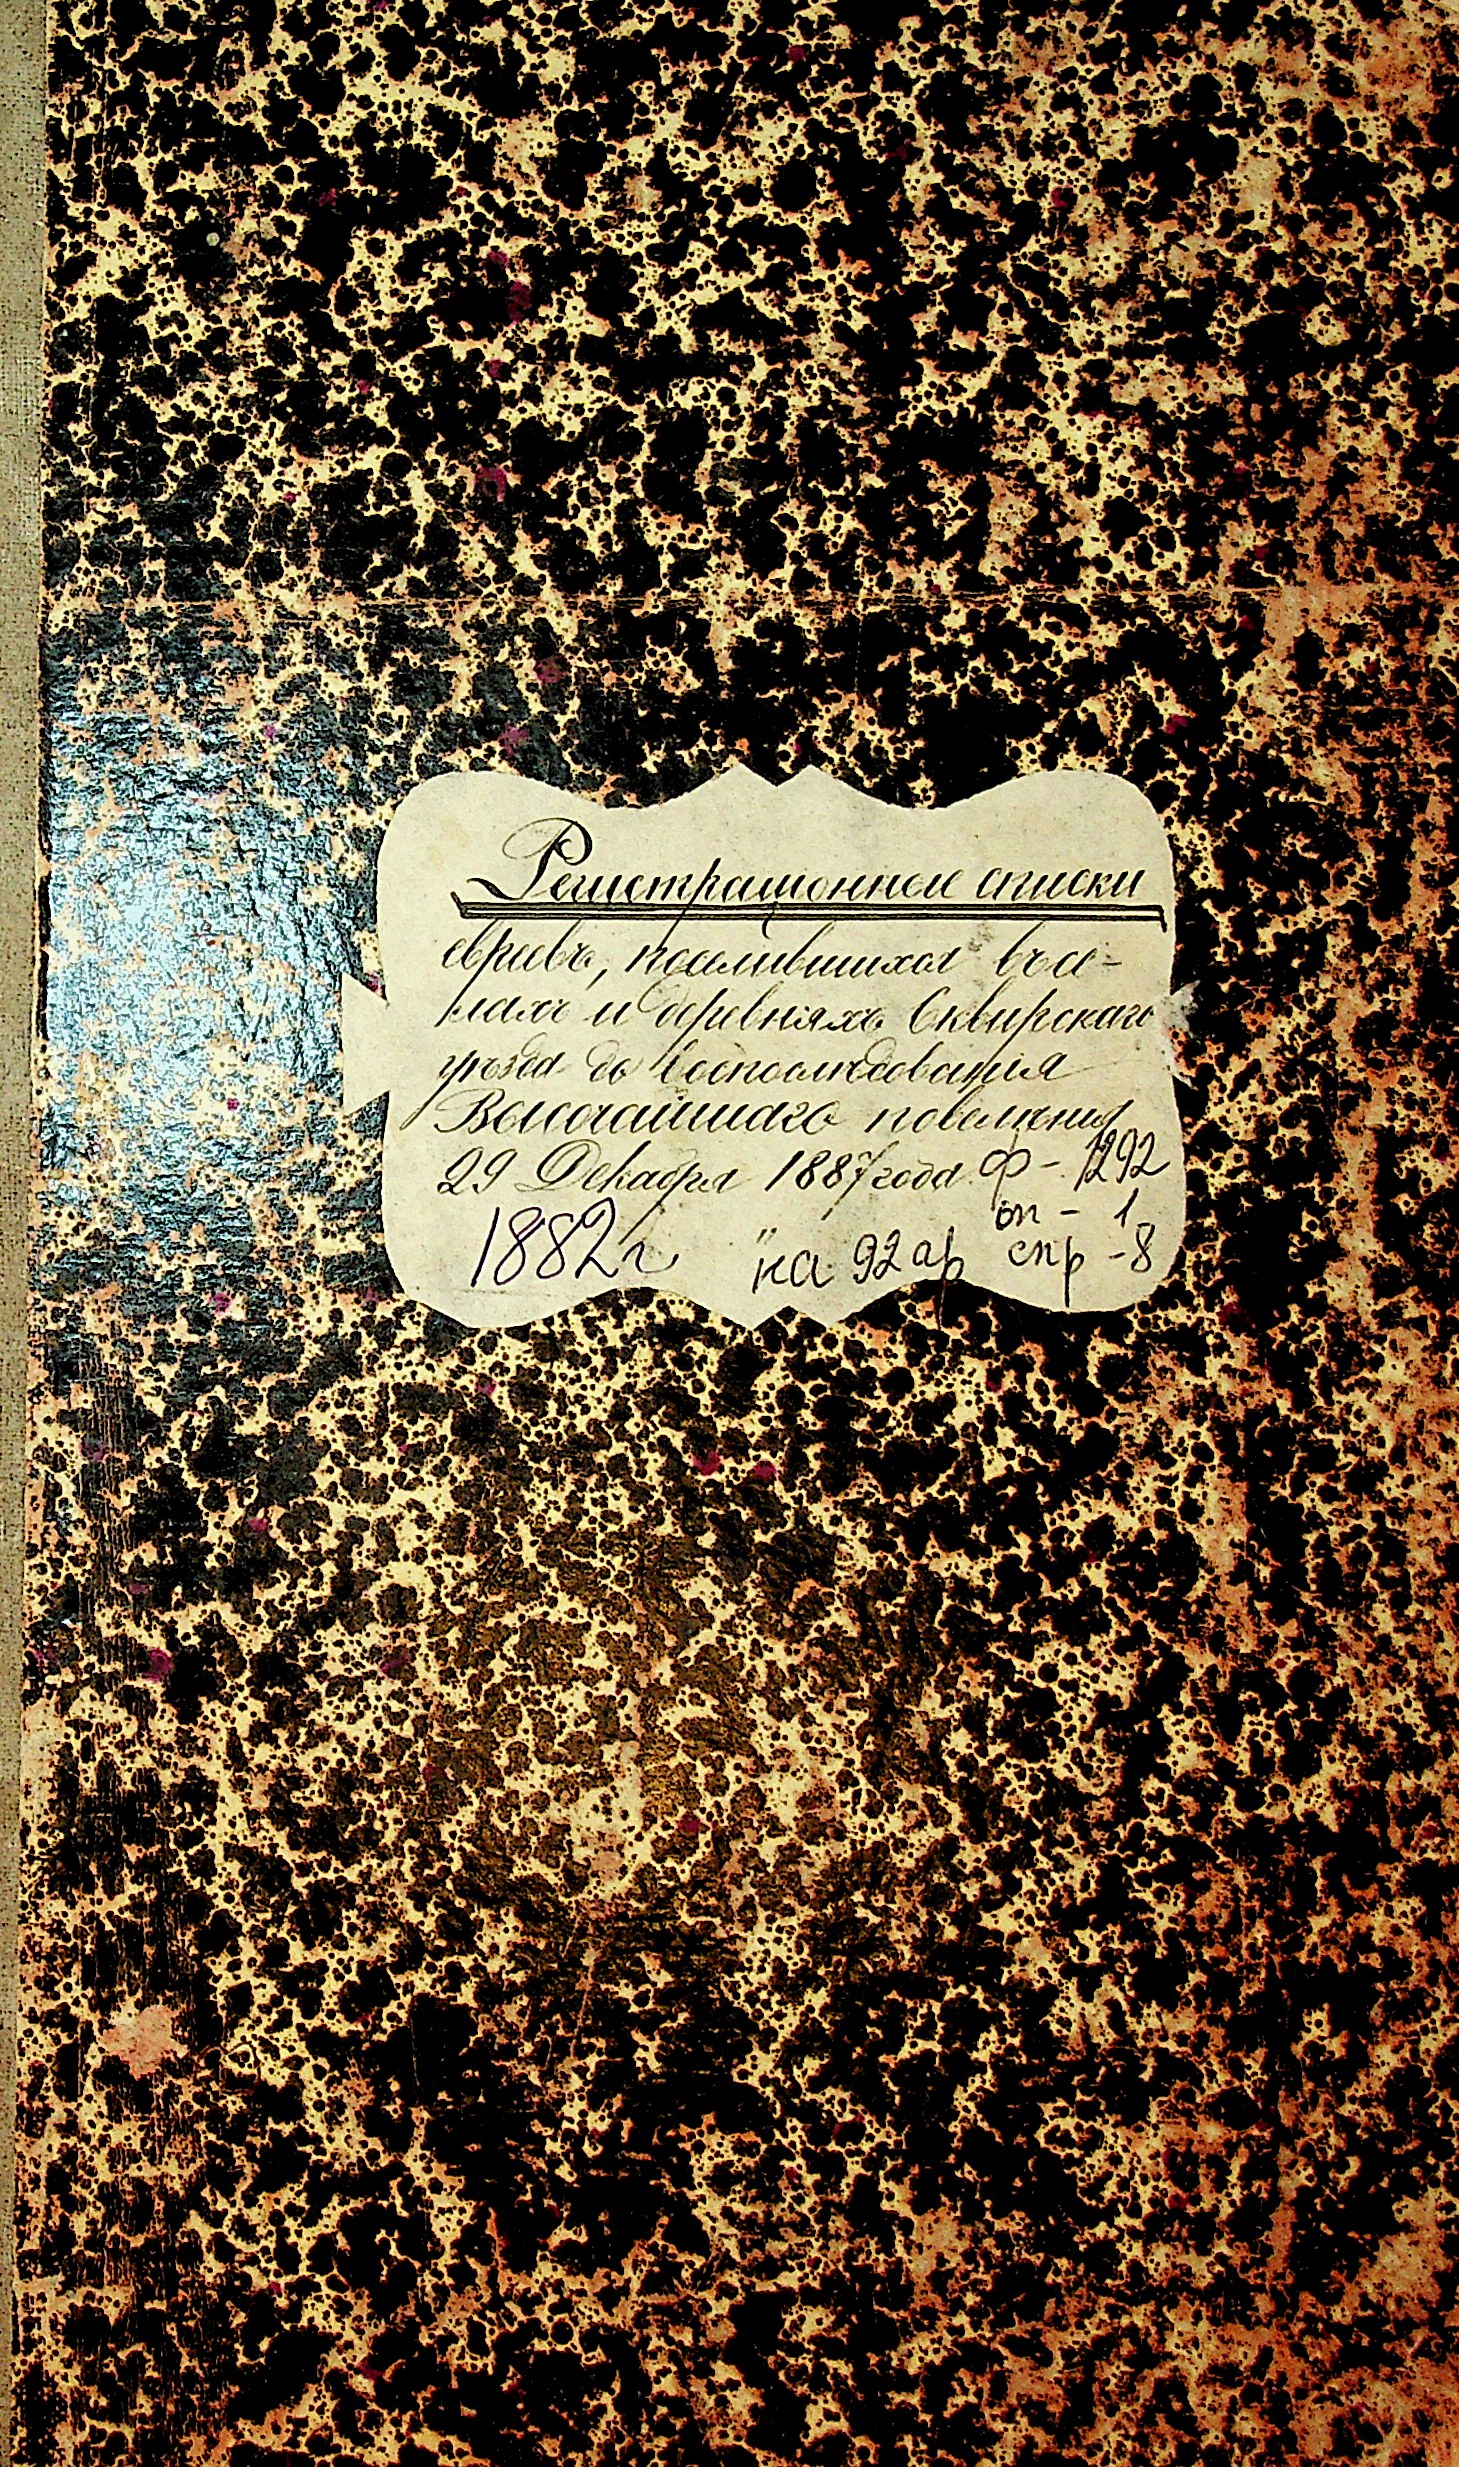 Регистраціонные списки
евреевъ, поселившихся въ се-
лахъ и деревняхъ Сквирскаго
уѣзда до воспослѣдованія
Высочайшаго повелѣнія
29 Декабря 1887 года. Ф - 1292
оп - 1
1882 г на 92 ар спр - 8